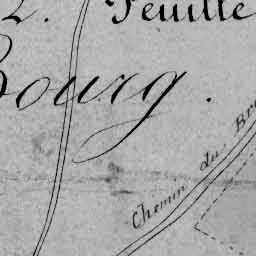 2. Feuille
Bourg.
Chemin du Bre